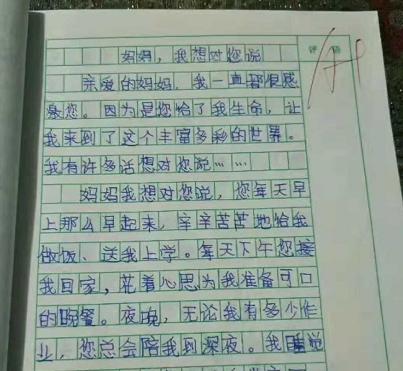 妈妈，我想对您说
亲爱的妈妈，我一直都很感
激您。因为是您给了我生命，让
我来到了这个丰富多彩的世界。
我有许多话想对您说……
妈妈我想对您说，您每天早
上那么早起来，辛辛苦苦地给我
做饭、送我上学。每天下午您接
我回家，花着心思为我准备可口
的晚餐。夜晚，无论我有多少作
业，您总会陪我到深夜。我睡觉